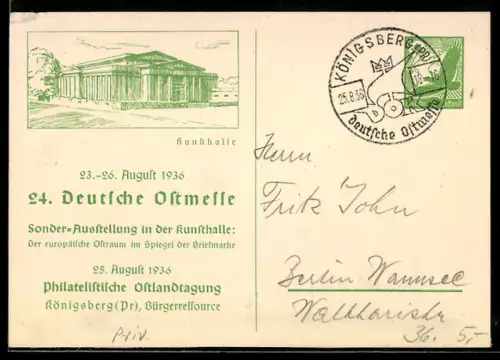 Kunsthalle
23.-26. August 1936
24. Deutsche Ostmesse
Sonder-Ausstellung in der Kunsthalle:
Der europäische Ostraum im Spiegel der Briefmarke
25. August 1936
Philatelistische Ostlandtagung
Königsberg (Pr), Bürgerressource
KÖNIGSBERG (PR)
25.8.36
DOK
deutsche Ostmesse
Herrn
Fritz John
Berlin Wannsee
36.
5,-
Priv.